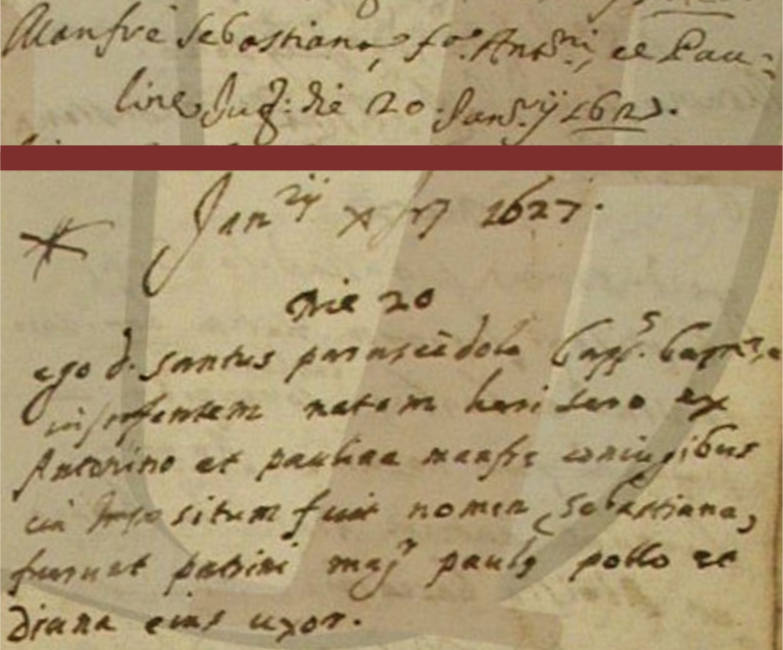 Manfrè Sebastiana, f.ª Ant.ni, et Pau=
line Jug: die 20 Jan.rij 162
Jan.rij x 1627.
Die 20
ego d. santus bap.s bap.
infantem natam heri sero ex
Antonino et paulina manfrè coniugibus
cui impositum fuit nomen Sebastiana,
fuerunt patrini mag.r paulus pollo et
diana eius uxor.